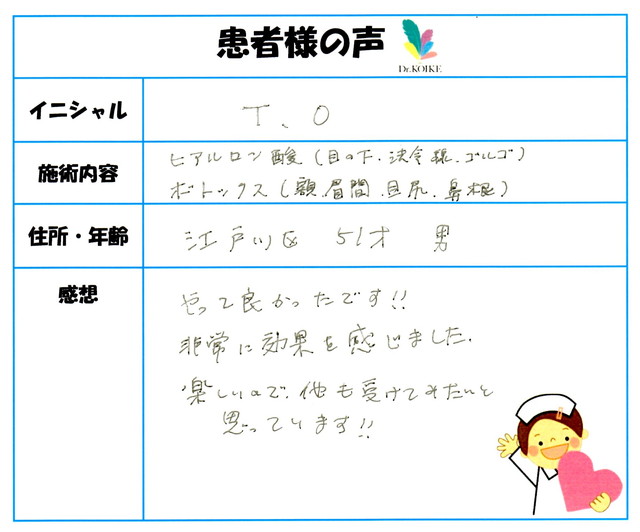 患者様の声
Dr.KOIKE
イニシャル
T、O
施術内容
ヒアルロン酸（目の下、法令線、ゴルゴ）
ボトックス（額、眉間、目尻、鼻根）
住所・年齢
江戸川区 51才 男
感想
やって良かったです!!
非常に効果を感じました.
楽しいので、他も受けてみたいと
思っています!!